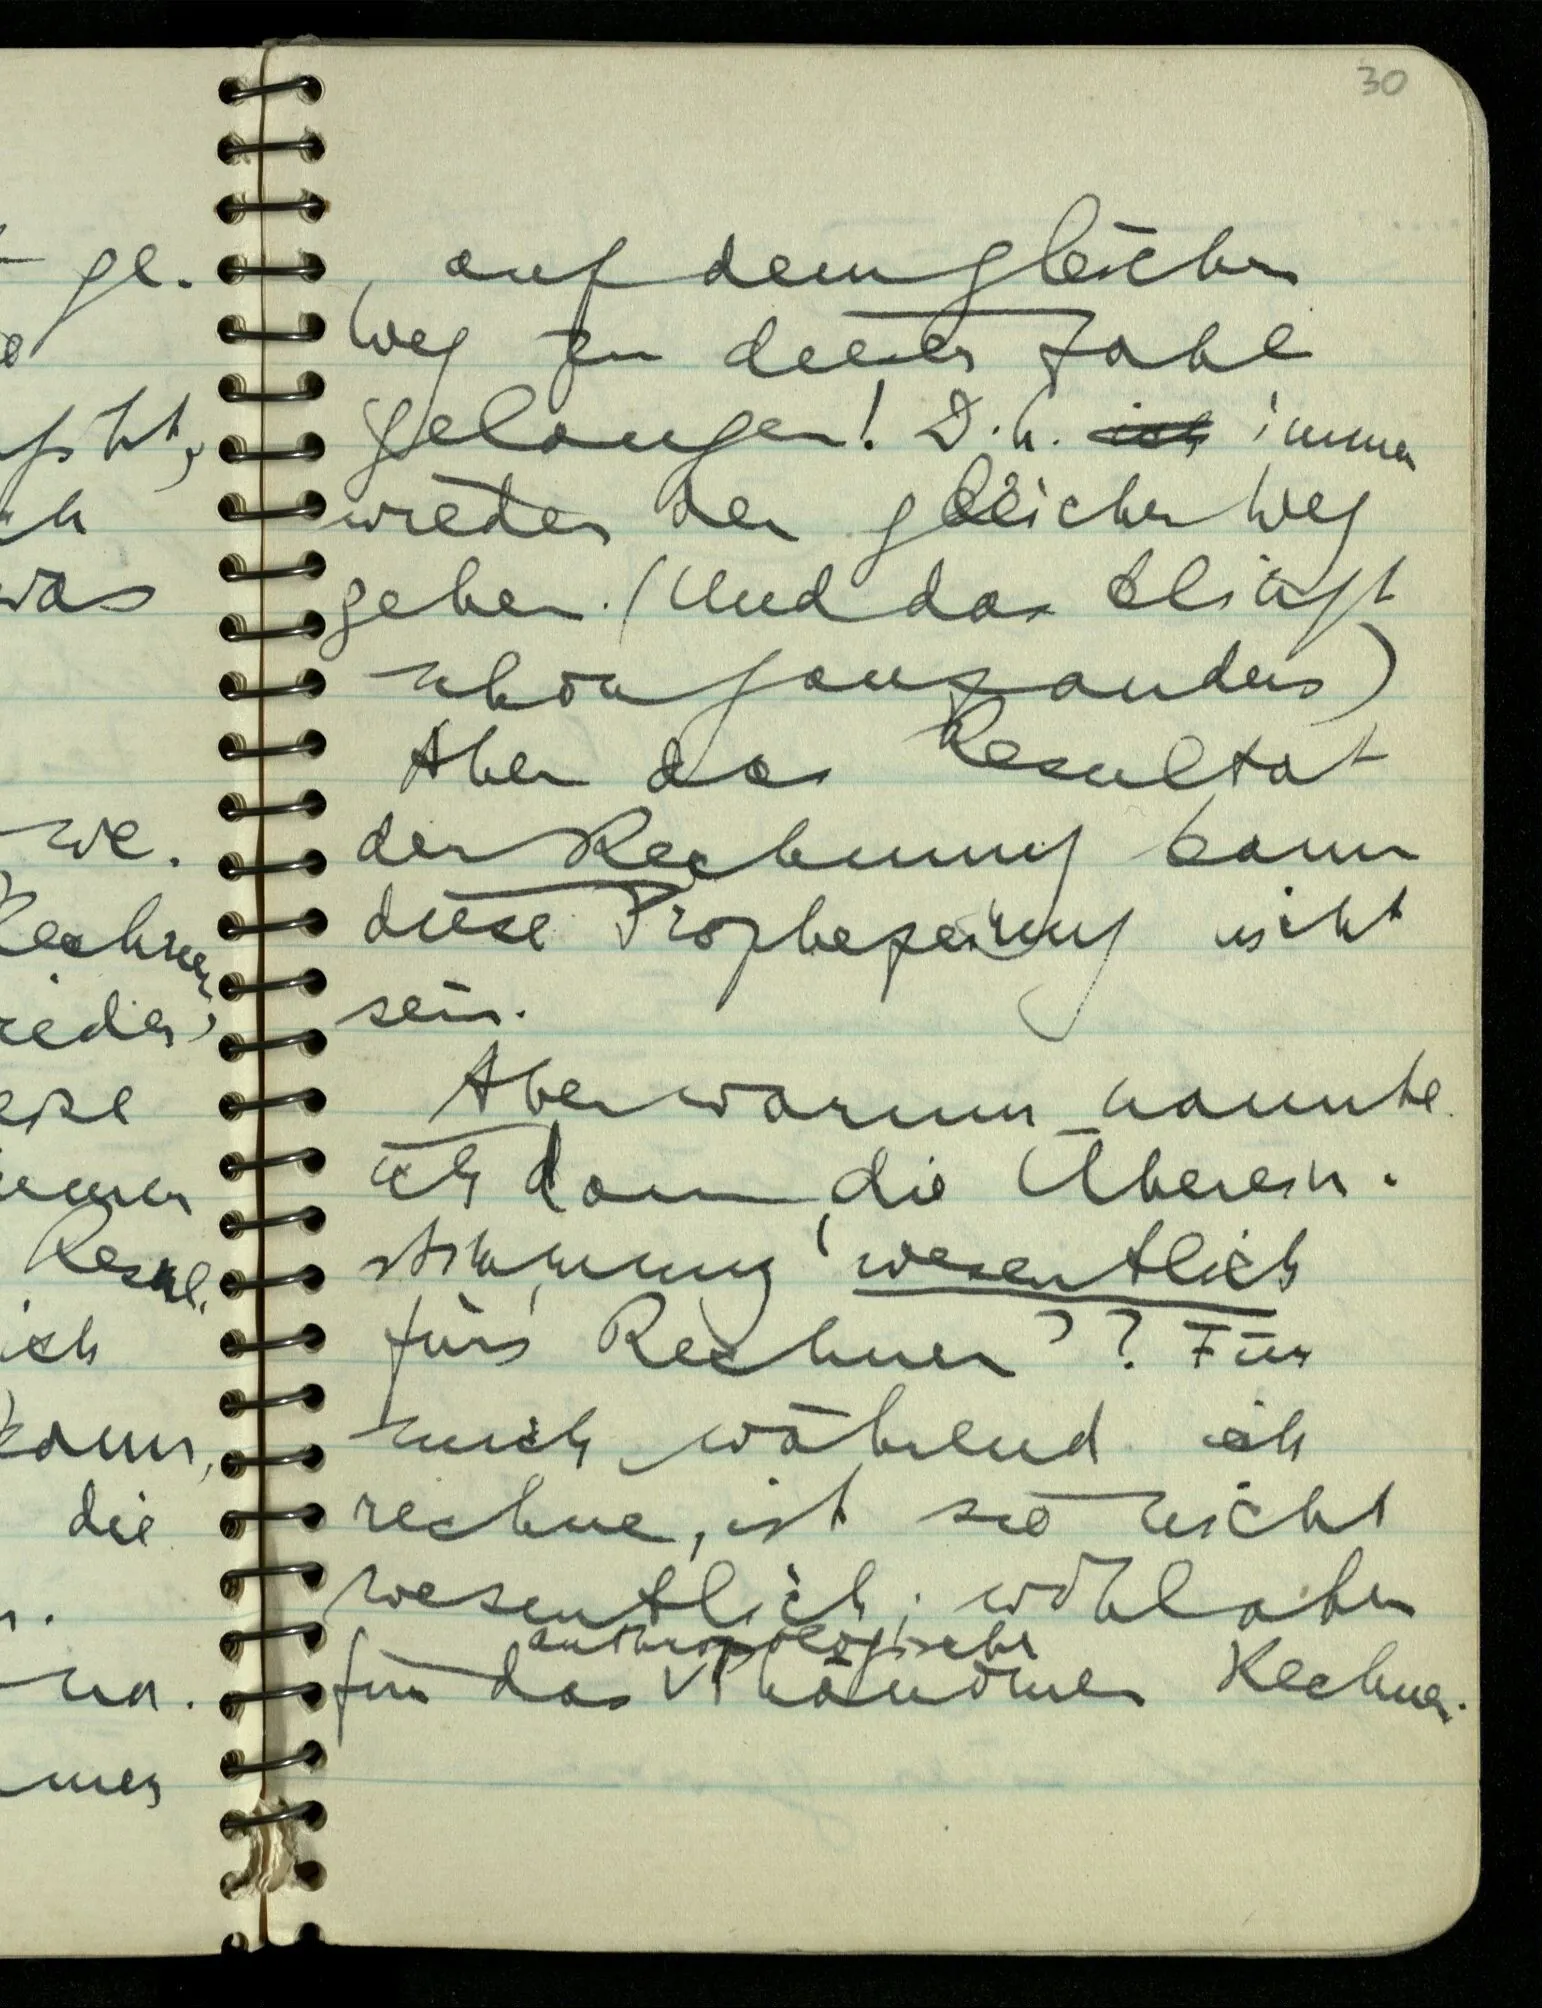 30
ge.
, auf dem gleichen
Weg zu dieser Zahl
gelangen! D.h. ich immer
wieder den gleichen Weg
was
gehen. (Und das klingt
schon ganz anders)
Aber das Resultat
we.
der Rechnung kann
Rechnen
diese Prophezeiung nicht
wieder,
sein.
Aber warum nannte
ich dann die Überein-
Resul.
stimmung 'wesentlich
ich
fürs Rechnen'?? Für
kann,
mich während ich
die
rechne, ist sie nicht
wesentlich; wohl aber
anthropologische
für das Phänomen Rechnen.